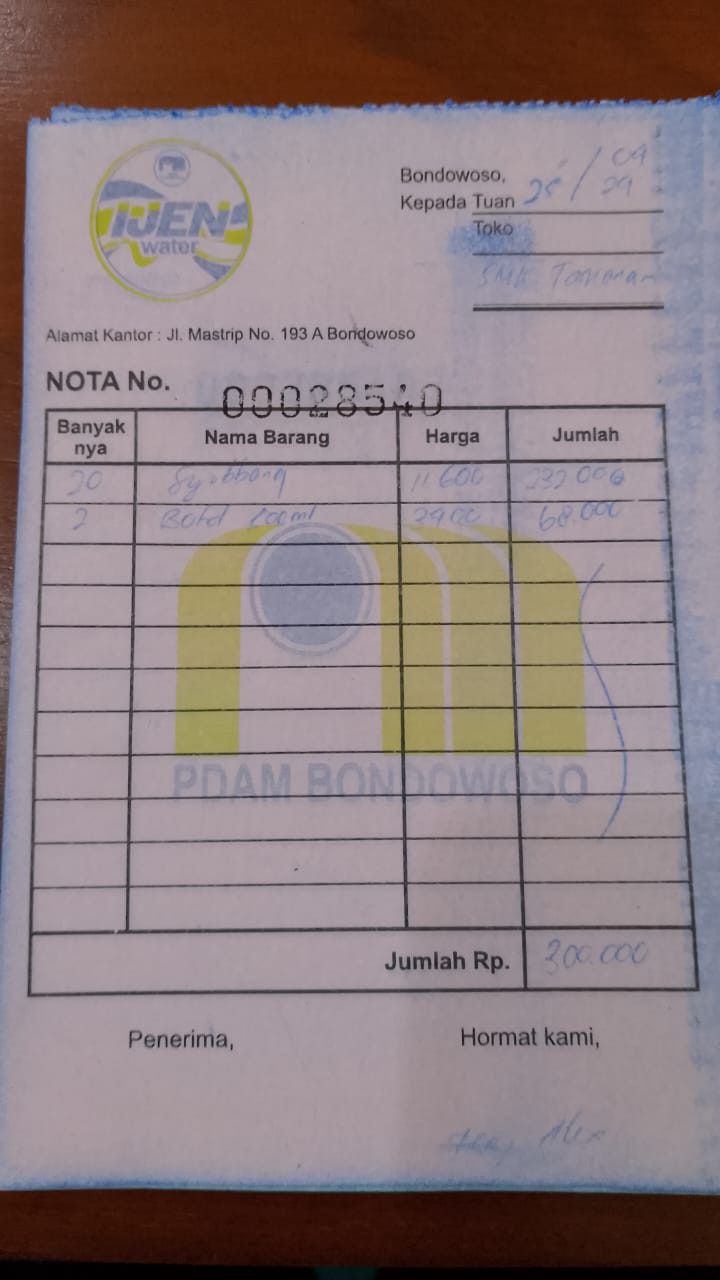 IJEN
water
Bondowoso, 25 / 09
Kepada Tuan
Toko
SMK Tamanan
Alamat Kantor : Jl. Mastrip No. 193 A Bondowoso
NOTA No. 00028540
Banyak nya Nama Barang Harga Jumlah
20 11 600 232 000
2 Botol 68.000
PDAM BONDOWOSO
Jumlah Rp. 300.000
Penerima, Hormat kami,